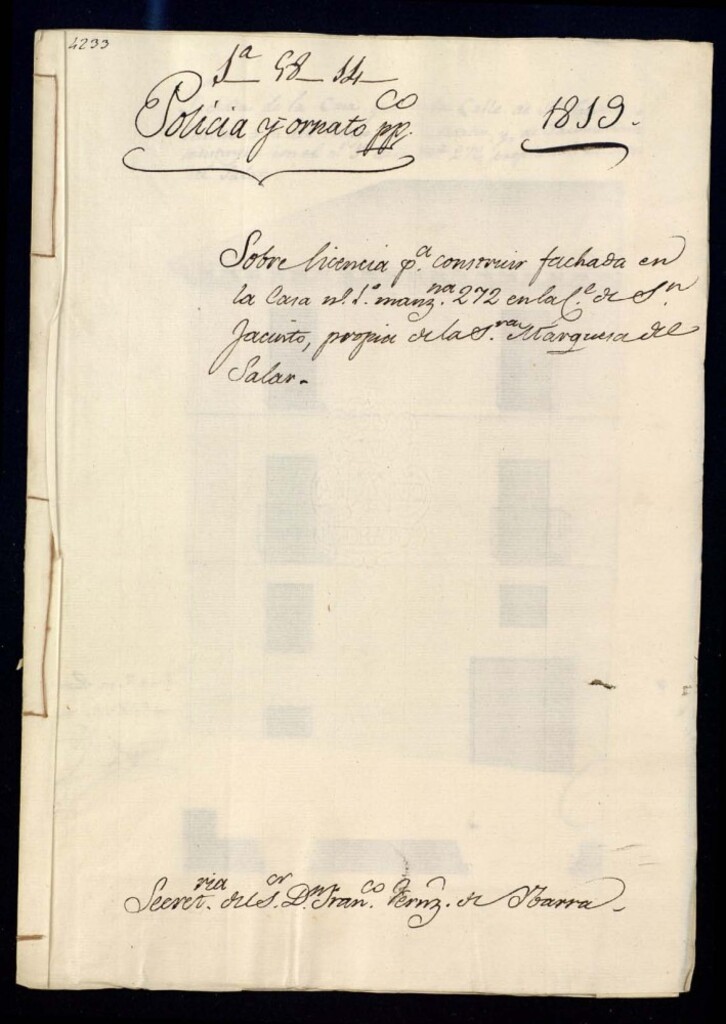 4233
1ª 58 14
Policia y ornato ppCO. 1819.
Sobre licencia p.a construir fachada en
la Casa nº. 1.º manz.na 272 en la C.e de S.n
Jacinto, propia de la S.ra Marquesa del
Salar.
Secret.ria del S.or D.n Fran.co Fernz. de Ybarra.